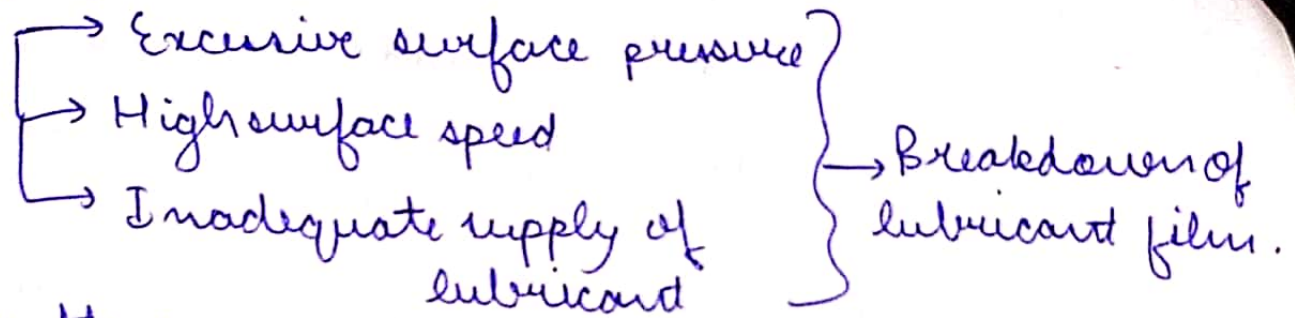 → Excessive surface pressure
→ High surface speed
→ Inadequate supply of
lubricant
→ Breakdown of
lubricant film.